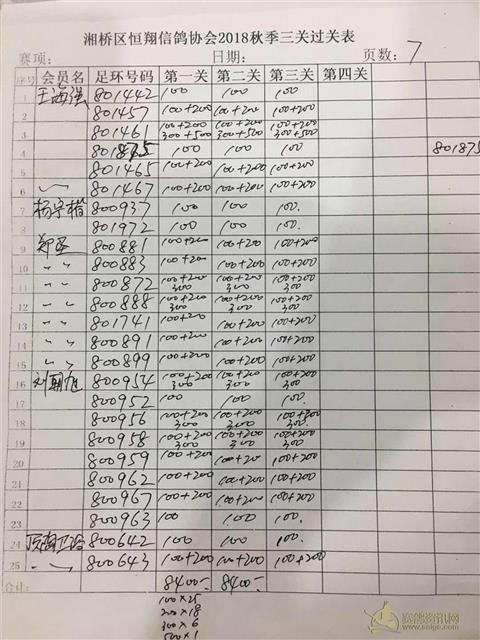 湘桥区恒翔信鸽协会2018秋季三关过关表
赛项: 日期: 页数: 7
序号 会员名 足环号码 第一关 第二关 第三关 第四关
1 王海强 801442 100 100 100
2 801457 100+200 100+200 100+200
3 801461 100+200 300+500 100+200 300+500 100+200 300+500
4 801875 100 100 100 801875
5 801465 100+200 100+200 100+200
6 〃 801467 100+200 100+200 100+200
7 800937 100 100 100.
8 801972 100 100 100.
9 800881 100+200 100+200 100+200
10 〃 〃 800883 100+200 100+200 100+200
11 〃 〃 800872 100+200 300 100+200 300 100+200 300
12 〃 〃 800888 100+200 300 100+200 300 100+200 300
13 〃 〃 801741 100+200 100+200 100+200
14 〃 〃 800891 100+200 100+200 100+200
15 〃 〃 800899 100+200 100+200 100+200
16 刘朝旭 800954 100+200 300 100+200 300 100+200 300
17 800952 100 100 100.
18 800956 100+200 300 100+200 300 100+200 300
19 800958 100+200 300 100+200 300 100+200 300
20 800959 100+200 100+200 100+200
21 800962 100+200 100+200 100+200
22 800967 100+200 100+200 100+200
23 800963 100 100 100.
24 800642 100 100 100.
25 〃 800643 100+200 100+200 100+200
合计: 8400- 8400-
100×25
200×18
300×6
500×1
赛鸽资讯网
www.saige.com